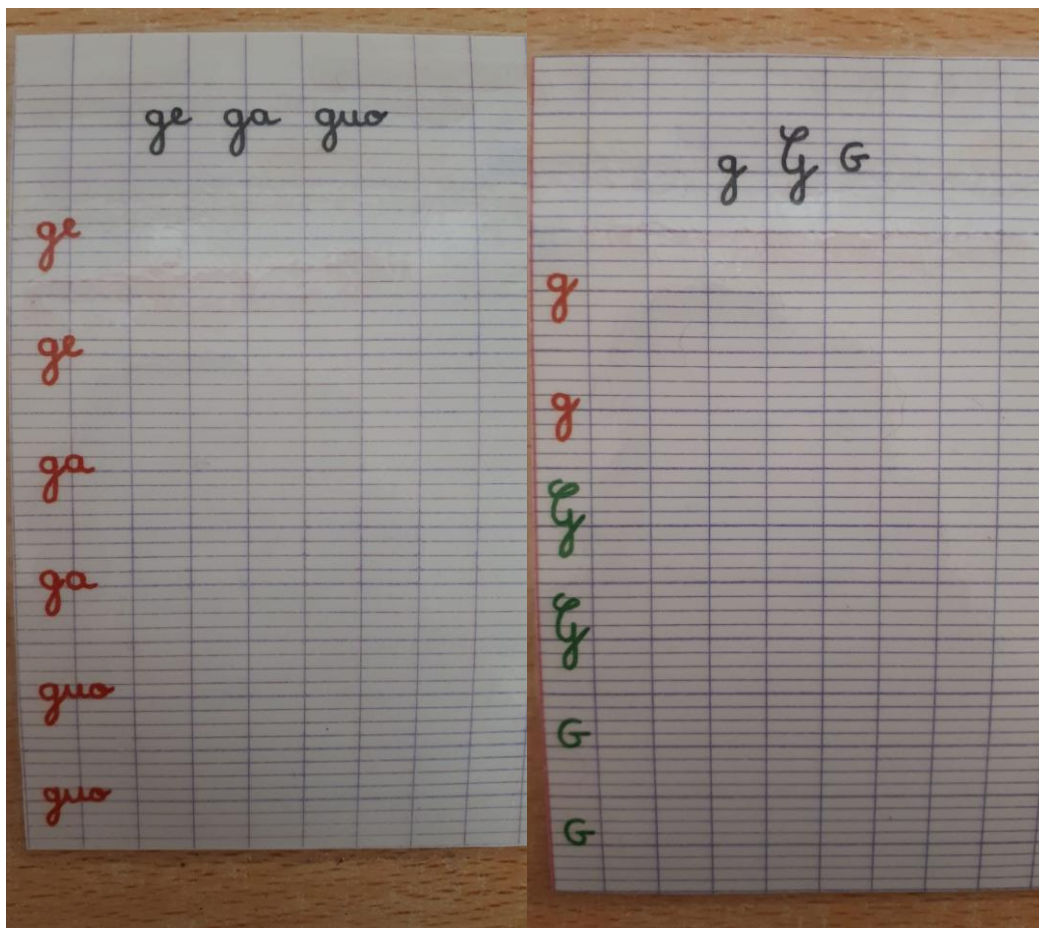 ge ga guo
ge
ge
ga
ga
guo
guo
g G G
g
g
G
G
G
G